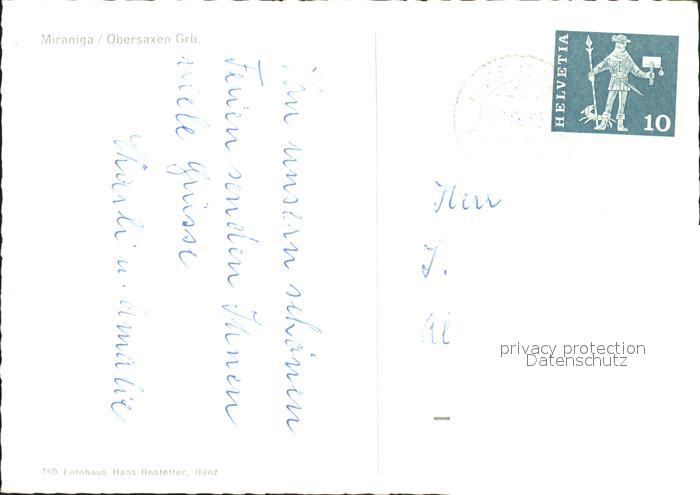 Miraniga / Obersaxen Grb.
Von unsern schönen
Ferien senden Ihnen
viele Grüsse
Charli u. Amalie
165 Fotohaus Hans Hostetter, Ilanz
HELVETIA
10
Herr
J.
Al
privacy protection
Datenschutz